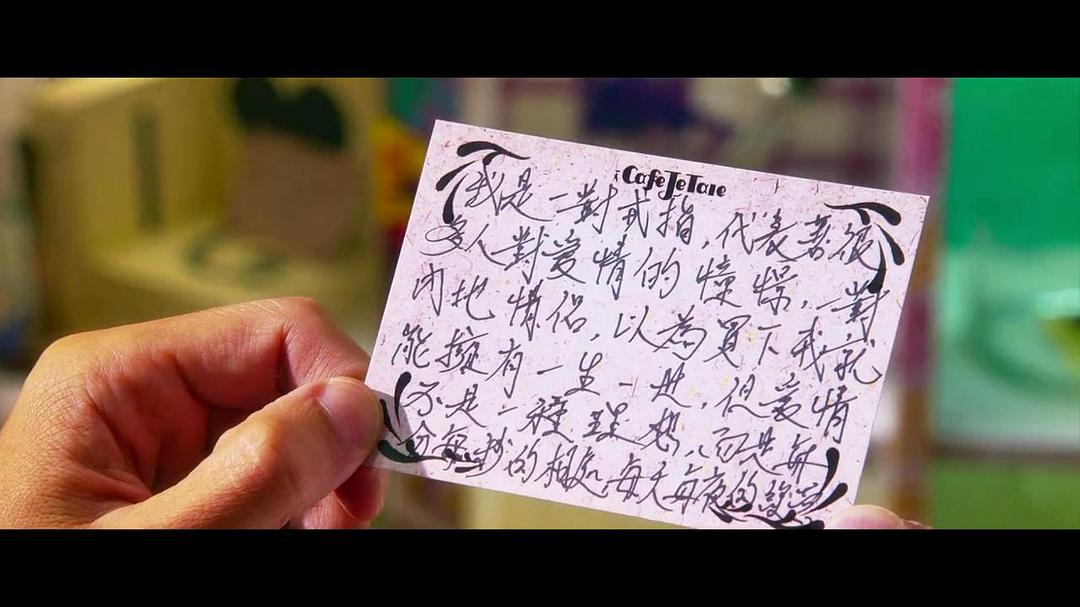 Cafe JeTaie
我是一對戒指,代表著很
多人對愛情的憧憬,一對
內地情侶,以為買下我就
能擁有一生一世,但愛情
不是一種理想,而是每
分每秒的相処每天每夜的